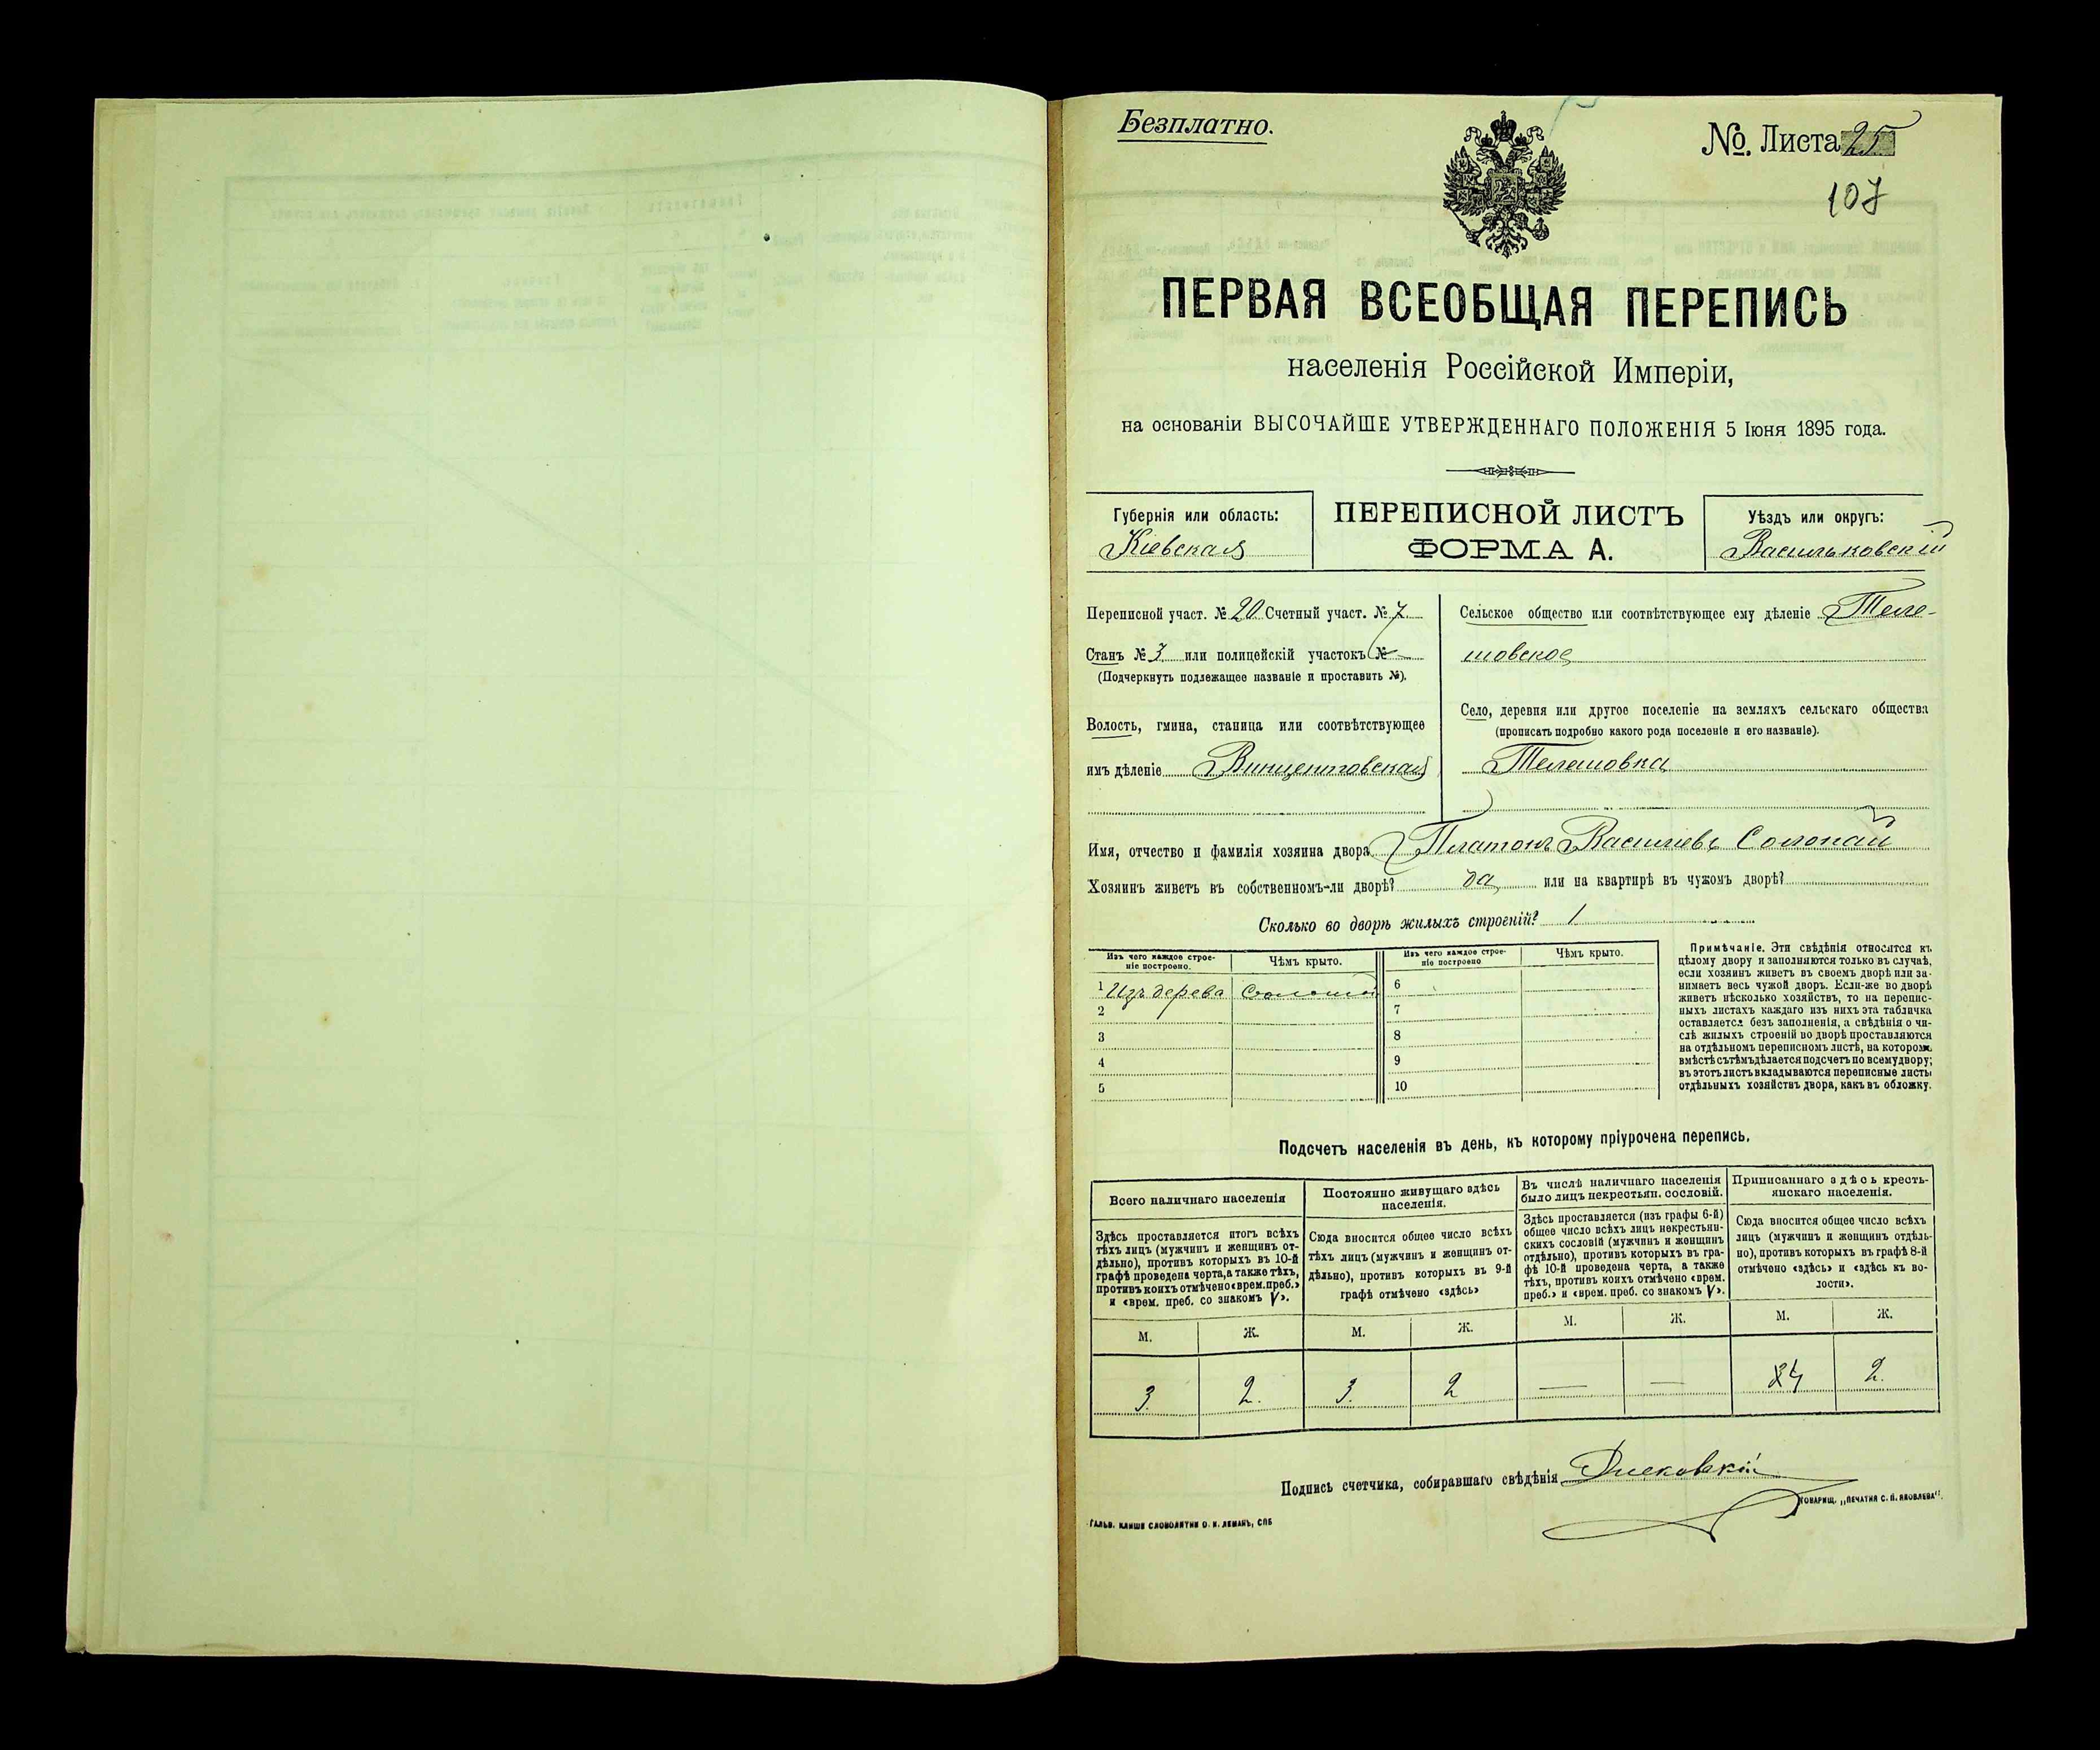 Безплатно.
№. Листа 25
107
ПЕРВАЯ ВСЕОБЩАЯ ПЕРЕПИСЬ
населенія Россійской Имперіи,
на основаніи ВЫСОЧАЙШЕ УТВЕРЖДЕННАГО ПОЛОЖЕНІЯ 5 Іюня 1895 года.
Губернія или область:
Кіевская
ПЕРЕПИСНОЙ ЛИСТЪ
ФОРМА А.
Уѣздъ или округъ:
Васильковскій
Переписной участ. № 20 Счетный участ. № 7
Станъ № 3 или полицейскій участокъ №
(Подчеркнуть подлежащее названіе и проставить №).
Волость, гмина, станица или соотвѣтствующее
имъ дѣленіе Винцентовская
Сельское общество или соотвѣтствующее ему дѣленіе Теле-
шовское
Село, деревня или другое поселеніе на земляхъ сельскаго общества
(прописать подробно какого рода поселеніе и его названіе).
Телешовка
Имя, отчество и фамилія хозяина двора Платонъ Васильевъ Солопай
Хозяинъ живетъ въ собственномъ-ли дворѣ? да или на квартирѣ въ чужомъ дворѣ?
Сколько во дворѣ жилыхъ строеній? 1
Изъ чего каждое строе-
ніе построено.
Чѣмъ крыто.
Изъ чего каждое строе-
ніе построено
Чѣмъ крыто.
1 Изъ дерева Соломой 6
2 7
3 8
4 9
5 10
Примѣчаніе. Эти свѣдѣнія относятся къ
цѣлому двору и заполняются только въ случаѣ,
если хозяинъ живетъ въ своемъ дворѣ или за-
нимаетъ весь чужой дворъ. Если-же во дворѣ
живетъ нѣсколько хозяйствъ, то на перепис-
ныхъ листахъ каждаго изъ нихъ эта табличка
оставляется безъ заполненія, а свѣдѣнія о чи-
слѣ жилыхъ строеній во дворѣ проставляются
на отдѣльномъ переписномъ листѣ, на которомъ
вмѣстѣ съ тѣмъ дѣлается подсчетъ по всему двору;
въ этотъ листъ вкладываются переписные листы
отдѣльныхъ хозяйствъ двора, какъ въ обложку.
Подсчетъ населенія въ день, къ которому пріурочена перепись.
Всего наличнаго населенія
Здѣсь проставляется итогъ всѣхъ
тѣхъ лицъ (мужчинъ и женщинъ от-
дѣльно), противъ которыхъ въ 10-й
графѣ проведена черта, а также тѣхъ,
противъ коихъ отмѣчено «врем. преб.»
и «врем. преб. со знакомъ V».
Постоянно живущаго здѣсь
населенія.
Сюда вносится общее число всѣхъ
тѣхъ лицъ (мужчинъ и женщинъ от-
дѣльно), противъ которыхъ въ 9-й
графѣ отмѣчено «здѣсь»
Въ числѣ наличнаго населенія
было лицъ некрестьян. сословій.
Здѣсь проставляется (изъ графы 6-й)
общее число всѣхъ лицъ некрестьян-
скихъ сословій (мужчинъ и женщинъ
отдѣльно), противъ которыхъ въ гра-
фѣ 10-й проведена черта, а также
тѣхъ, противъ коихъ отмѣчено «врем.
преб.» и «врем. преб. со знакомъ V».
Приписаннаго здѣсь кресть-
янскаго населенія.
Сюда вносится общее число всѣхъ
лицъ (мужчинъ и женщинъ отдѣль-
но), противъ которыхъ въ графѣ 8-й
отмѣчено «здѣсь» и «здѣсь къ во-
лости».
М. Ж. М. Ж. М. Ж. М. Ж.
3. 2. 3. 2 — — 4 2.
Подпись счетчика, собиравшаго свѣдѣнія
ГАЛЬВ. КЛИШЕ СЛОВОЛИТНИ О. И. ЛЕМАНЪ, СПБ
ТОВАРИЩ. „ПЕЧАТНЯ С. П. ЯКОВЛЕВА".